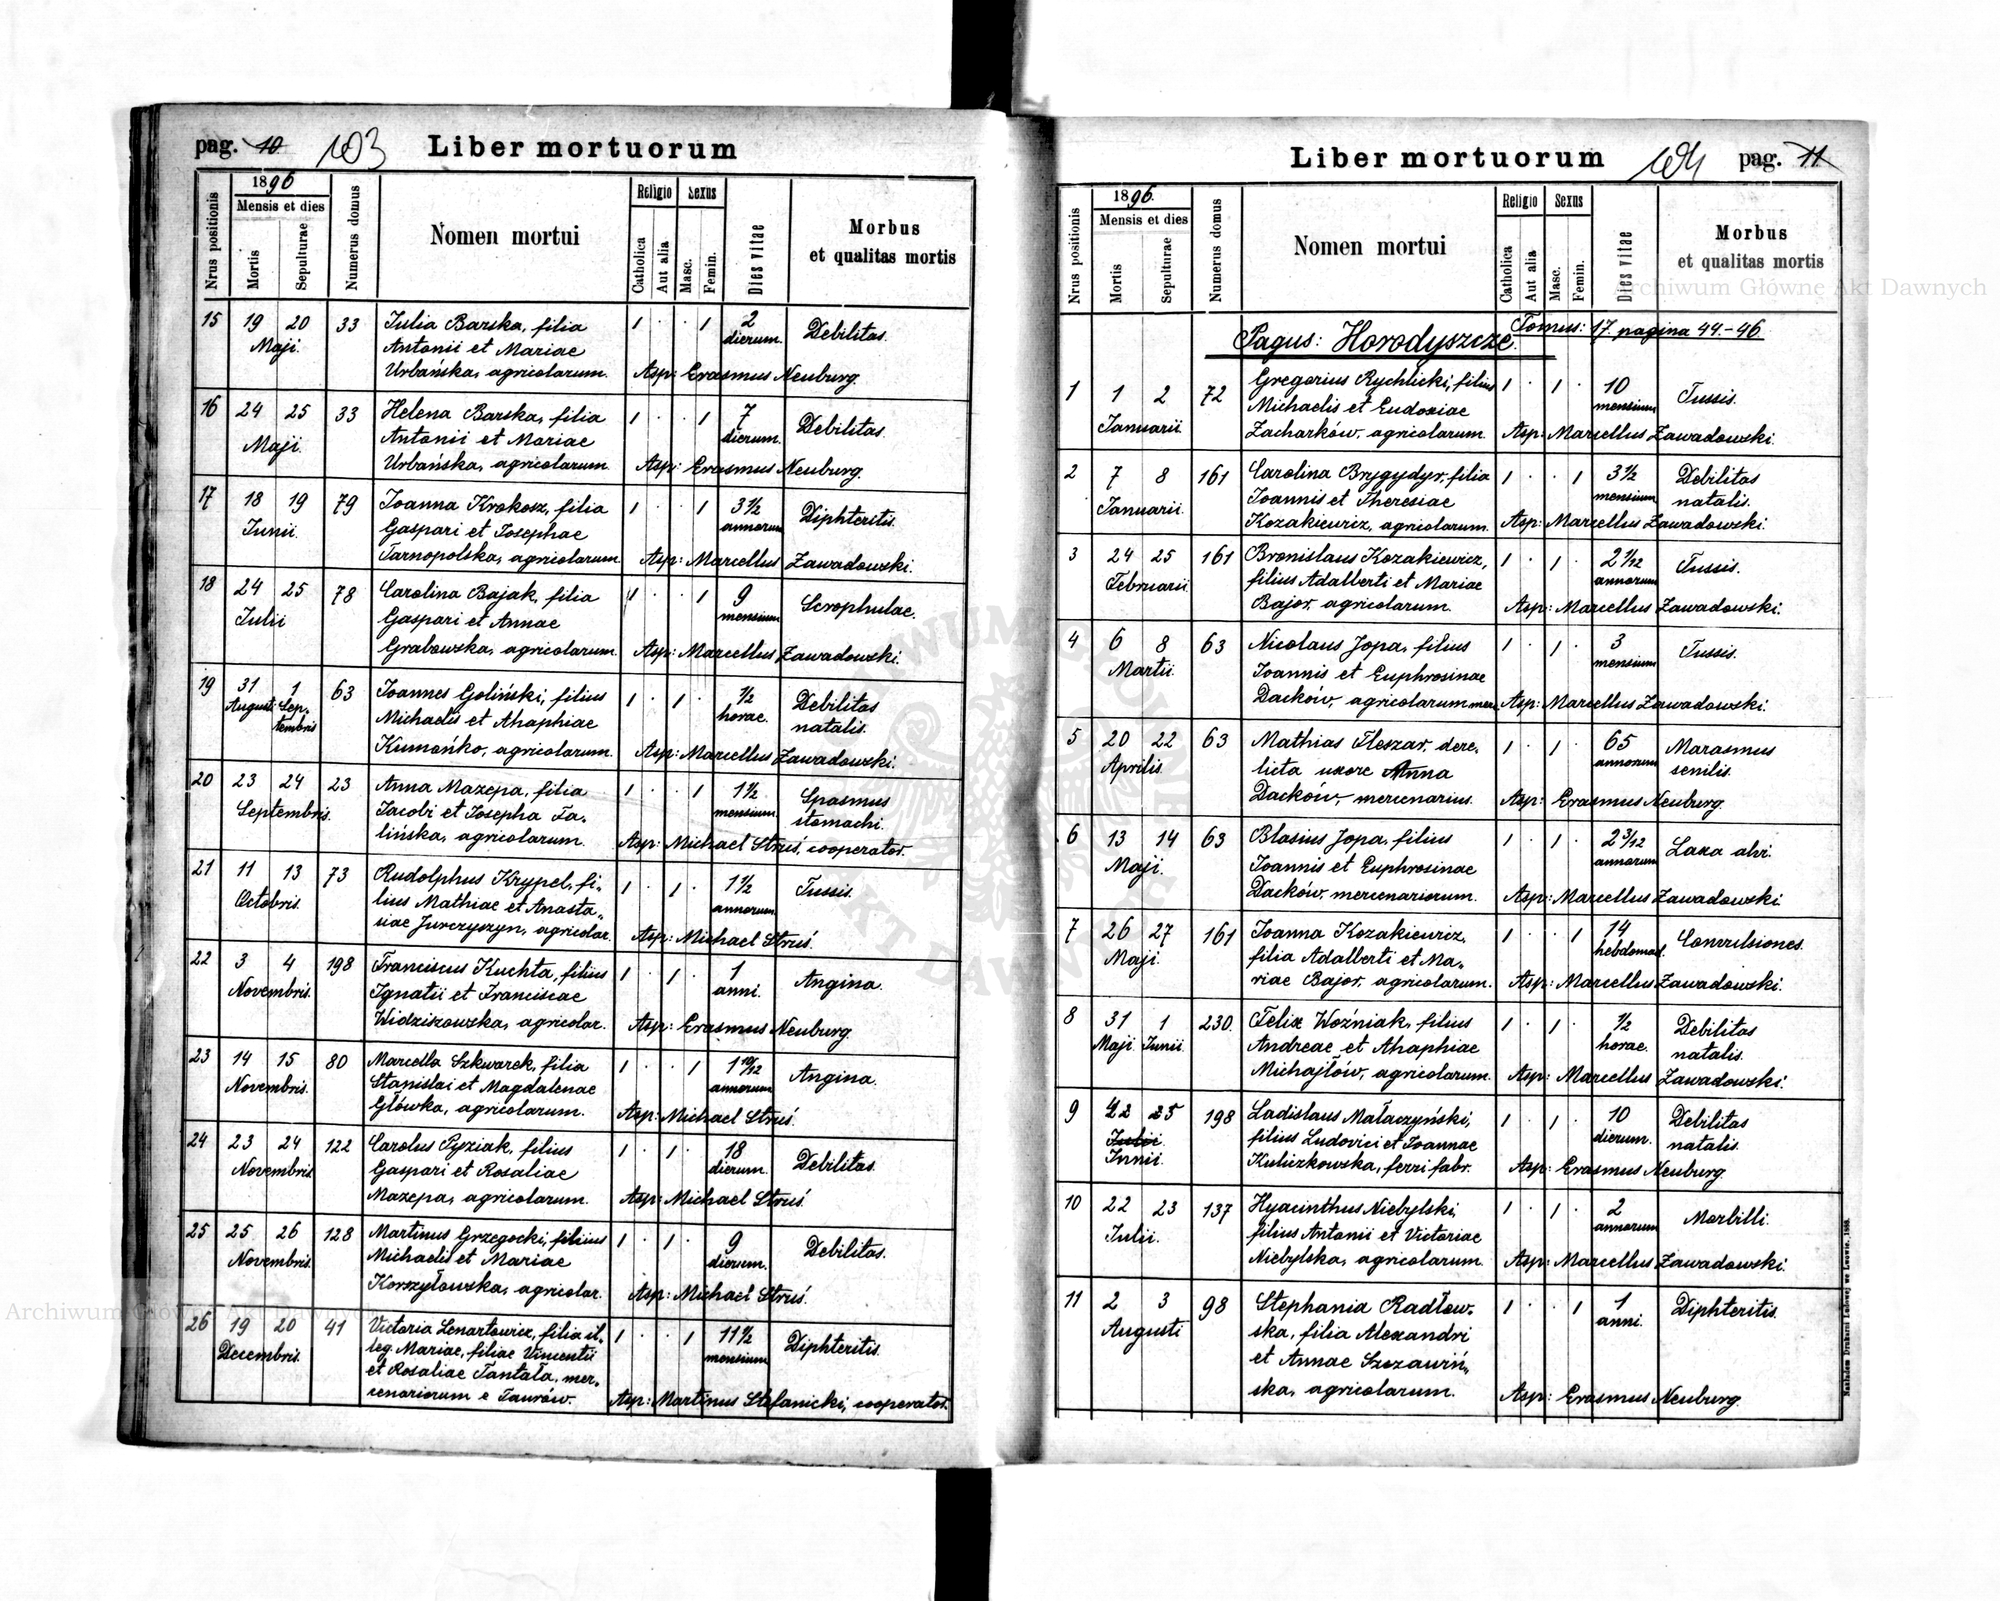 pag. 10 103 Liber mortuorum
Nrus positionis
1896
Mensis et dies
Mortis
Sepulturae
Numerus domus
Nomen mortui
Religio
Catholica
Aut alia
Sexus
Masc.
Femin.
Dies vitae
Morbus
et qualitas mortis
15 19 20 33 Julia Barska, filia 1 . . 1 2 Debilitas.
Maji. Antonii et Mariae dierum.
Urbańska, agricolarum. Asp: Erasmus Neuburg.
16 24 25 33 Helena Barska, filia 1 . . 1 7 Debilitas.
Maji. Antonii et Mariae dierum.
Urbańska, agricolarum. Asp: Erasmus Neuburg.
17 18 19 79 Joanna Krokosz, filia 1 . . 1 3 1/2 Diphteritis.
Junii. Gaspari et Josephae annorum
Tarnopolska, agricolarum. Asp: Marcellus Zawadowski.
18 24 25 78 Carolina Bajak, filia 1 . . 1 9 Scrophulae.
Julii Gaspari et Annae mensium
Grabowska, agricolarum. Asp: Marcellus Zawadowski.
19 31 1 63 Joannes Goliński, filius 1 . 1 . 1/2 Debilitas
Augusti Sep- Michaelis et Ahaphiae horae. natalis.
tembris Kumańko, agricolarum. Asp: Marcellus Zawadowski.
20 23 24 23 Anna Mazepa, filia 1 . . 1 1 1/2 Spasmus
Septembris. Jacobi et Josepha Ja- mensium. stomachi.
lińska, agricolarum. Asp: Michael Struś, cooperator.
21 11 13 73 Rudolphus Krypel, fi- 1 . 1 . 1 1/2 Tussis.
Octobris. lius Mathiae et Anasta- annorum.
siae Jurczyszyn, agricolar. Asp: Michael Struś.
22 3 4 198 Franciscus Kuchta, filius 1 . 1 . 1 Angina.
Novembris. Ignatii et Franciscae anni.
Widziszowska, agricolar. Asp: Erasmus Neuburg.
23 14 15 80 Marcella Szkwarek, filia 1 . . 1 1 10/12 Angina.
Novembris. Stanislai et Magdalenae annorum
Główka, agricolarum. Asp: Michael Struś.
24 23 24 122 Carolus Pyziak, filius 1 . 1 . 18 Debilitas.
Novembris. Gaspari et Rosaliae dierum.
Mazepa, agricolarum. Asp: Michael Struś.
25 25 26 128 Martinus Grzegocki, filius 1 . 1 . 9 Debilitas.
Novembris. Michaelis et Mariae dierum.
Korszyłowska, agricolar. Asp: Michael Struś.
26 19 20 41 Victoria Lenartowicz, filia il- 1 . . 1 11 1/2 Diphteritis.
Decembris. leg. Mariae, filiae Vincentii mensium
et Rosaliae Tantała, mer-
cenariorum e Taurów. Asp: Martinus Stefanicki, cooperator.
Liber mortuorum 104 pag. 11
Nrus positionis
1896.
Mensis et dies
Mortis
Sepulturae
Numerus domus
Nomen mortui
Religio
Catholica
Aut alia
Sexus
Masc.
Femin.
Dies vitae
Morbus
et qualitas mortis
Tomus: 17. pagina 44-46.
Pagus: Horodyszcze.
1 1 2 72 Gregorius Rychlicki, filius 1 . 1 . 10 Tussis.
Januarii. Michaelis et Eudoxiae mensium
Zacharków, agricolarum. Asp: Marcellus Zawadowski.
2 7 8 161 Carolina Brygydyr, filia 1 . . 1 3 1/2 Debilitas
Januarii. Joannis et Theresiae mensium natalis.
Kozakiewicz, agricolarum. Asp: Marcellus Zawadowski.
3 24 25 161 Bronislaus Kozakiewicz, 1 . 1 . 2 1/12 Tussis.
Februarii. filius Adalberti et Mariae annorum
Bajor, agricolarum. Asp: Marcellus Zawadowski.
4 6 8 63 Nicolaus Jopa, filius 1 . 1 . 3 Tussis.
Martii. Joannis et Euphrosinae mensium
Dacków, agricolarum merc. Asp: Marcellus Zawadowski.
5 20 22 63 Mathias Fleszar, dere- 1 . 1 . 65 Marasmus
Aprilis. licta uxore Anna annorum senilis.
Dacków, mercenarius. Asp: Erasmus Neuburg.
6 13 14 63 Blasius Jopa, filius 1 . 1 . 2 3/12 Laxa alvi.
Maji. Joannis et Euphrosinae annorum
Dacków, mercenariorum. Asp: Marcellus Zawadowski
7 26 27 161 Joanna Kozakiewicz, 1 . . 1 14 Convulsiones.
Maji. filia Adalberti et Ma- hebdomad.
riae Bajor, agricolarum. Asp: Marcellus Zawadowski.
8 31 1 230. Felix Woźniak, filius 1 . 1 . 1/2 Debilitas
Maji Junii. Andreae et Ahaphiae horae. natalis.
Michajłów, agricolarum. Asp: Marcellus Zawadowski.
9 22 25 198 Ladislaus Małaczyński, 1 . 1 . 10 Debilitas
Julii. filius Ludovici et Joannae dierum. natalis.
Junii. Kuliczkowska, ferri fabr. Asp: Erasmus Neuburg.
10 22 23 137 Hyacinthus Niebylski, 1 . 1 . 2 Morbilli.
Julii. filius Antonii et Victoriae annorum
Niebylska, agricolarum. Asp: Marcellus Zawadowski.
11 2 3 98 Stephania Radłow- 1 . . 1 1 Diphteritis.
Augusti ska, filia Alexandri anni.
et Annae Szczawiń-
ska, agricolarum. Asp: Erasmus Neuburg.
Archiwum Główne Akt Dawnych
Archiwum Główne Akt Dawnych
ARCHIWUM GŁÓWNE AKT DAWNYCH